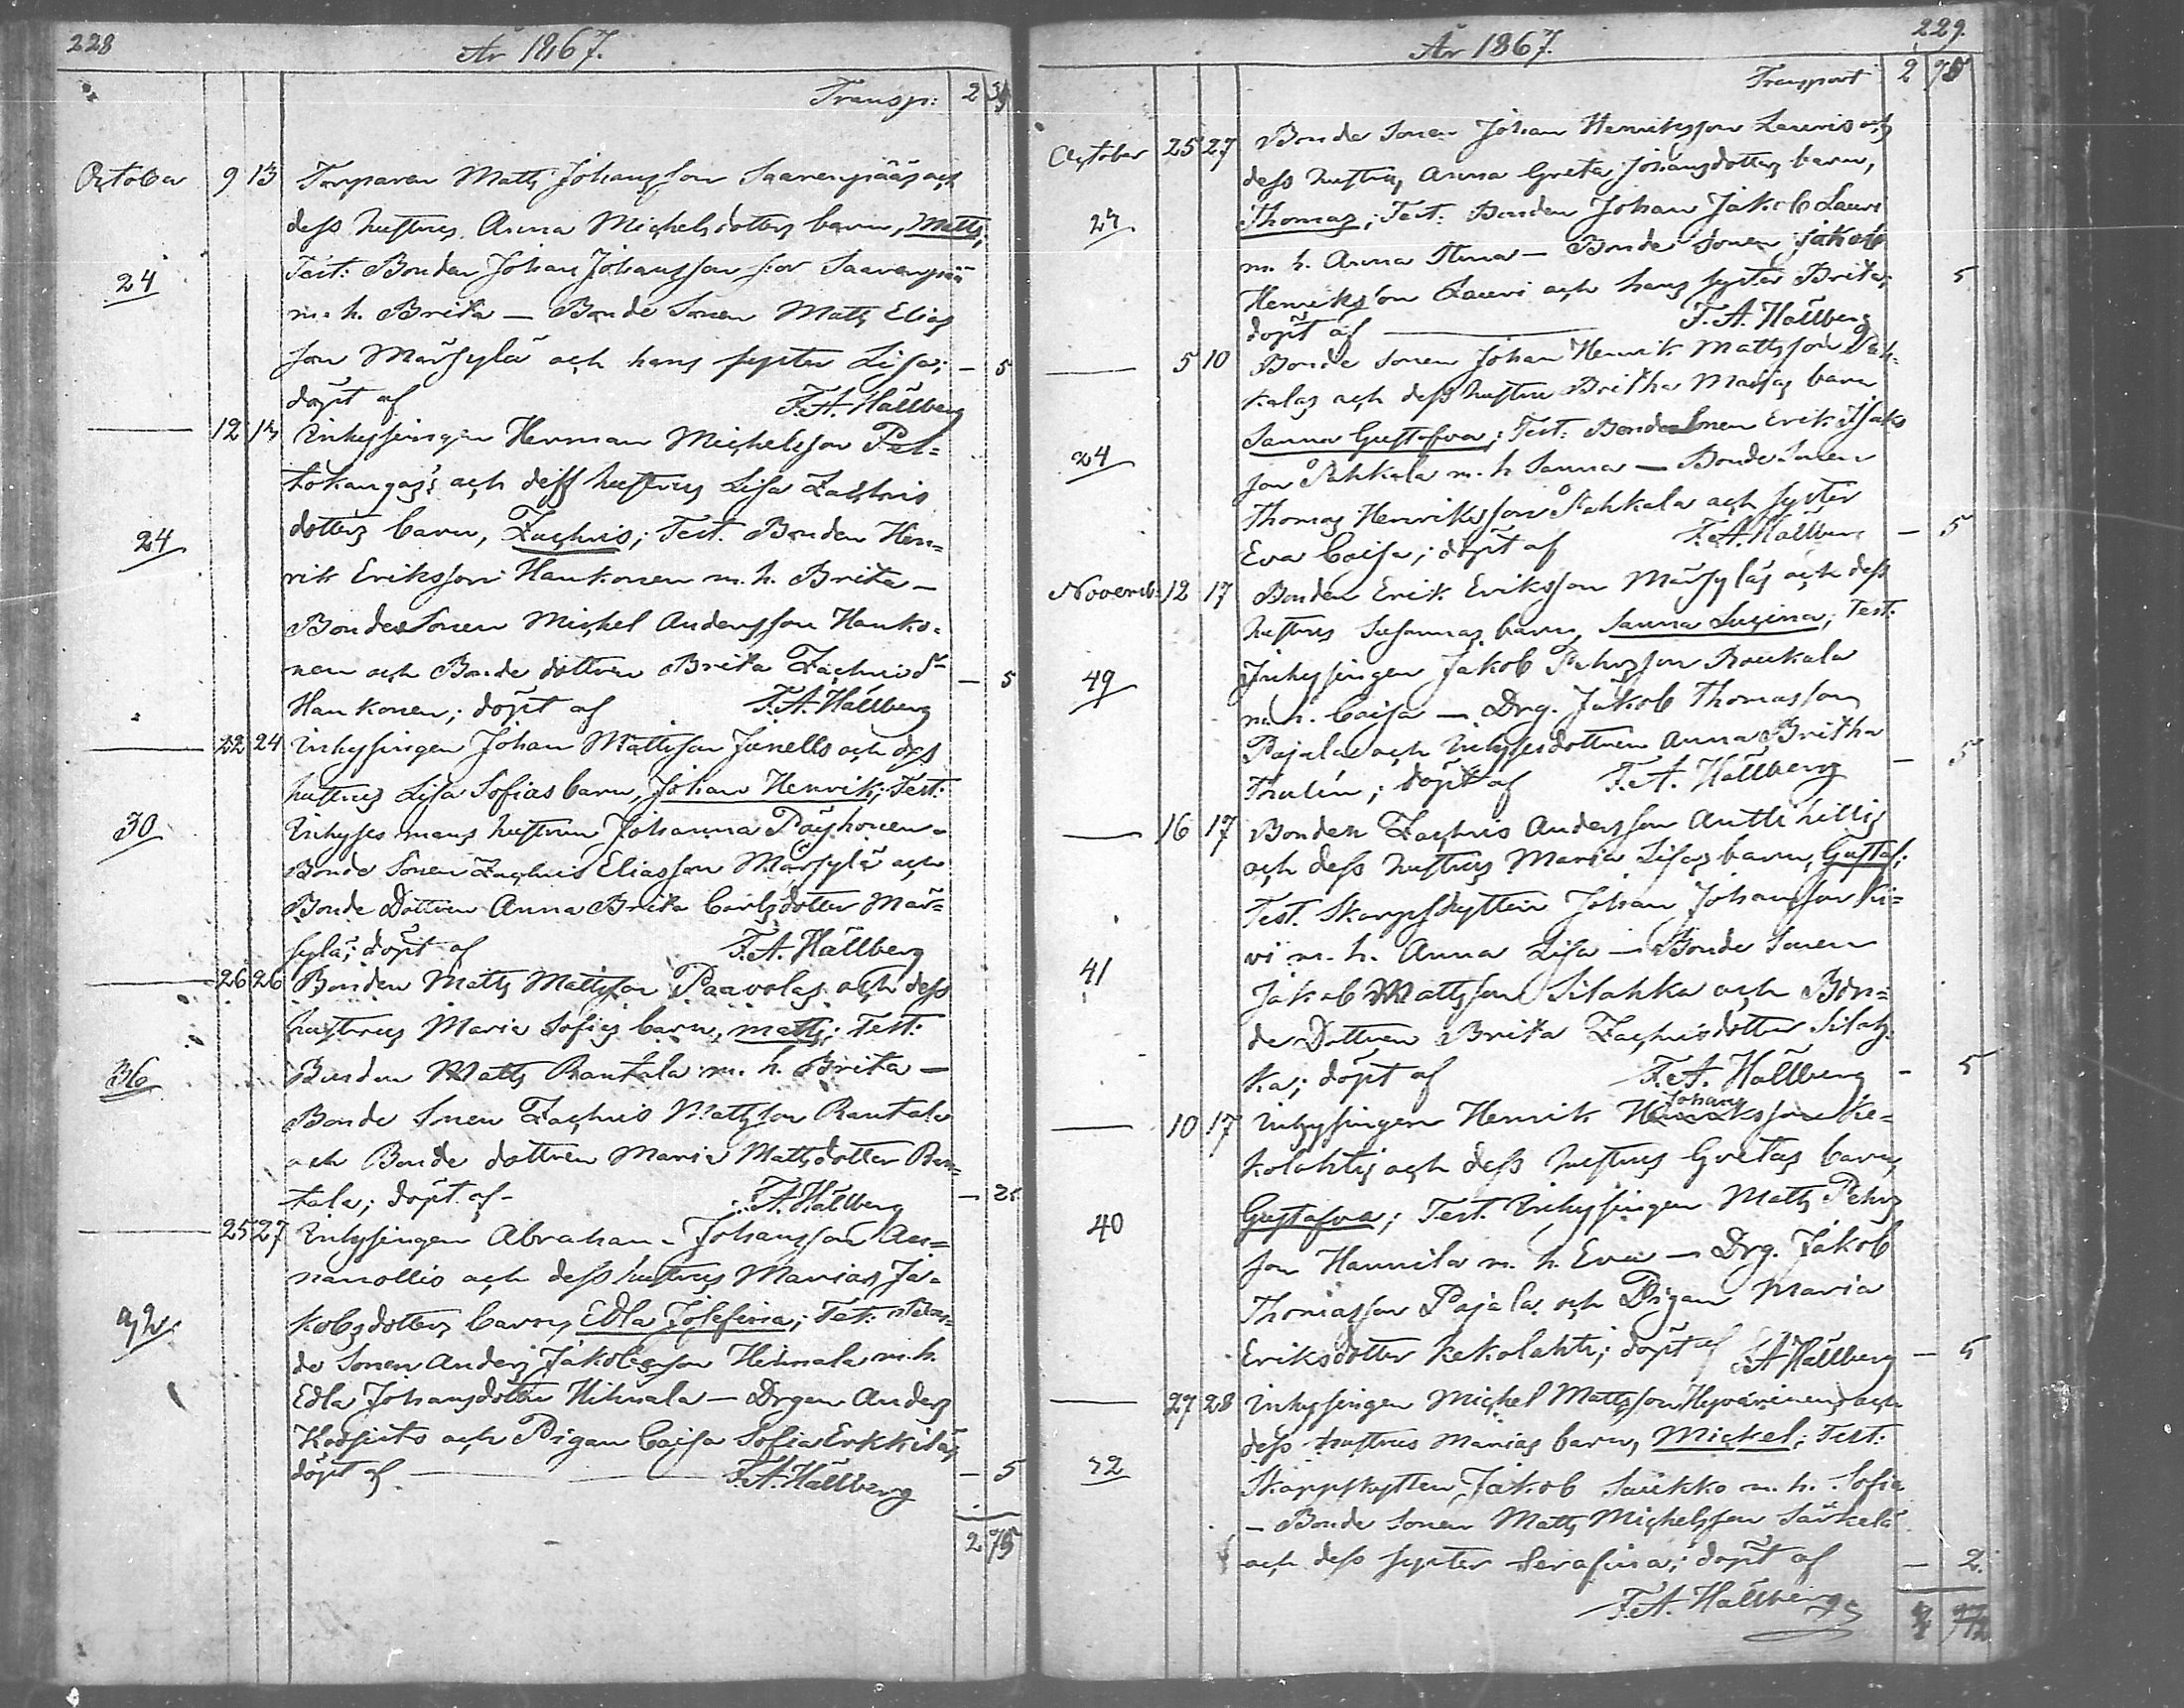 228
År 1867.
Transp: 2
October 9 13 Torparen Matts Johansson Saarenpääs och
dess hustrus Anna Michelsdotters barn, Matts;
24 Test: Bonden Johan Johansson Saarenpää
m. h. Brita — Bonde Sonen Matts Elias
son Märsylä och hans syster Lisa; — 5
döpt af F. A. Hällberg
12 Inhysingen Herman Michelsson Pel=
tokangas's och dess hustrus Lisa Zachris
24 dotters barn, Zachris; Test. Bonden Hen=
rik Eriksson Hankonen m. h. Brita —
Bonde Sonen Michel Andersson Hanko=
nen och Bonde dottren Brita Zachrisdr — 5
Hankonen; döpt af F. A. Hällberg
22 24 Inhysingen Johan Mattsson Junells och dess
hustrus Lisa Sofias barn, Johan Henrik; Test:
30 Inhyses mans hustrun Johanna Pöyhönen —
Bonde Sonen Zachris Eliasson Märsylä och
Bonde Dottren Anna Brita Carlsdotter Mär=
sylä; döpt af F. A. Hällberg
26 26 Bonden Matts Mattsson Paavolas och dess
hustrus Maria Sofias barn, Matts; Test:
36 Bonden Matts Rautala m. h. Brita —
Bonde Sonen Zachris Mattsson Rautala
och Bonde dottren Maria Mattsdotter Rau=
tala; döpt af — F. A. Hällberg
25 27 Inhysingen Abraham Johansson An=
nanollis och dess hustrus Marias Ja=
kobsdotters barn, Edla Josefina; Test:
de Sonen Anders Jakobsson Hihnala m. h.
Edla Johansdotter Hihnala — Drgen Anders
och Pigan Caisa Sofia Erkkilä;
döpt af F. A. Hällberg — 5
2 75
229.
År 1867.
Transport 2 75
October 25 27 Bonde Sonen Johan Henriksson Lauris och
dess hustrus Anna Greta Johansdotters barn,
Thomas; Test: Bonden Johan Jakob Lauri
m. h. Anna Stina — Bonde Sonen Jakob
Henriksson Lauri och hans syster Brita; 5
döpt af F. A. Hällberg
5 10 Bonde Sonen Johan Henrik Mattsson Pah=
kalas och dess hustru Britha Majas barn
24 Sanna Gustafva; Test: Bonde Sonen Erik Isaks
son Pahkala m. h. Sanna — Bonde Sonen
Thomas Henriksson Pahkala och syster
Eva Caisa; döpt af F. A. Hällberg — 5
Novemb: 12 17 Bonden Erik Eriksson Märsyläs och dess
hustrus Susannas barn, Sanna Lusina; Test:
49 Inhysingen Jakob Pehrsson Raukala
m. h. Caisa — Drg. Jakob Thomasson
Pajala och Inhysesdottren Anna Britha
Thulin; döpt af F. A. Hällberg — 5
16 17 Bonden Zachris Andersson Anttihillis
och dess hustrus Maria Lisas barn, Gustaf;
Test. Skarpskytten Johan Johansson Ki=
vi m. h. Anna Lisa — Bonde Sonen
41 Jakob Mattsson Silahka och Bon=
de Dottren Brita Zachrisdotter Silah=
ka; döpt af F. A. Hällberg — 5
Johans
10 17 Inhysingen Henrik Henriksson Ke=
kolahtis och dess hustrus Gretas barn,
40 Gustafva; Test. Inhysingen Matts Pehrs
son Hannila m. h. Eva — Drg. Jakob
Thomasson Pajala och Pigan Maria
Eriksdotter Kekolahti; döpt af F. A. Hällberg — 5
27 28 Inhysingen Michel Mattsson Hyvärinens och
dess hustrus Marias barn, Mickel; Test:
32 Skarpskytten Jakob Saukko m. h. Sofia
— Bonde Sonen Matts Michelsson Särkelä
och dess syster Serafina; döpt af — 2.
F. A. Hällberg